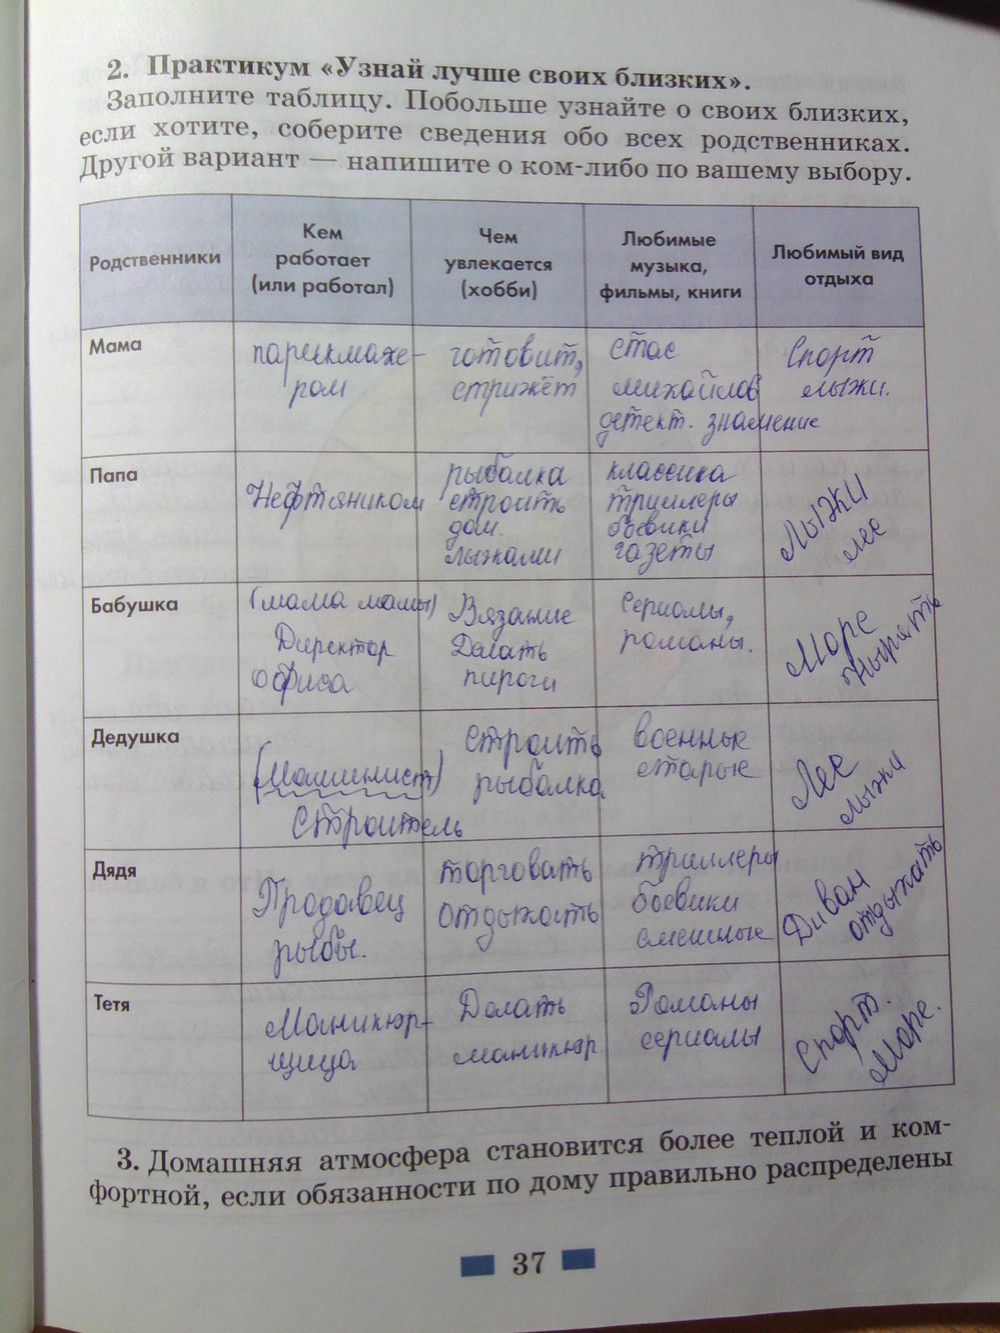 2. Практикум «Узнай лучше своих близких».
Заполните таблицу. Побольше узнайте о своих близких,
если хотите, соберите сведения обо всех родственниках.
Другой вариант — напишите о ком-либо по вашему выбору.
Родственники
Кем
работает
(или работал)
Чем
увлекается
(хобби)
Любимые
музыка,
фильмы, книги
Любимый вид
отдыха
Мама
парикмахе-
ром
готовит,
стрижёт
стас
михайлов
детект. знамение
Спорт
лыжи.
Папа
Нефтяником
рыбалка
строить
дом.
лыжами
классика
триллеры
боевики
газеты
Лыжи
лес
Бабушка
(мама мамы)
Директор
офиса
Вязание
Делать
пироги
Сериалы,
романы.
Море
нырять
Дедушка
(Машинист)
Строитель
строить
рыбалка
военные
старые
Лес
лыжи
Дядя
Продавец
рыбы.
торговать
отдыхать
триллеры
боевики
смешные
Диван
отдыхать
Тетя
Маникюр-
щица
Делать
маникюр
Романы
сериалы
Спорт.
Море.
3. Домашняя атмосфера становится более теплой и ком-
фортной, если обязанности по дому правильно распределены
37